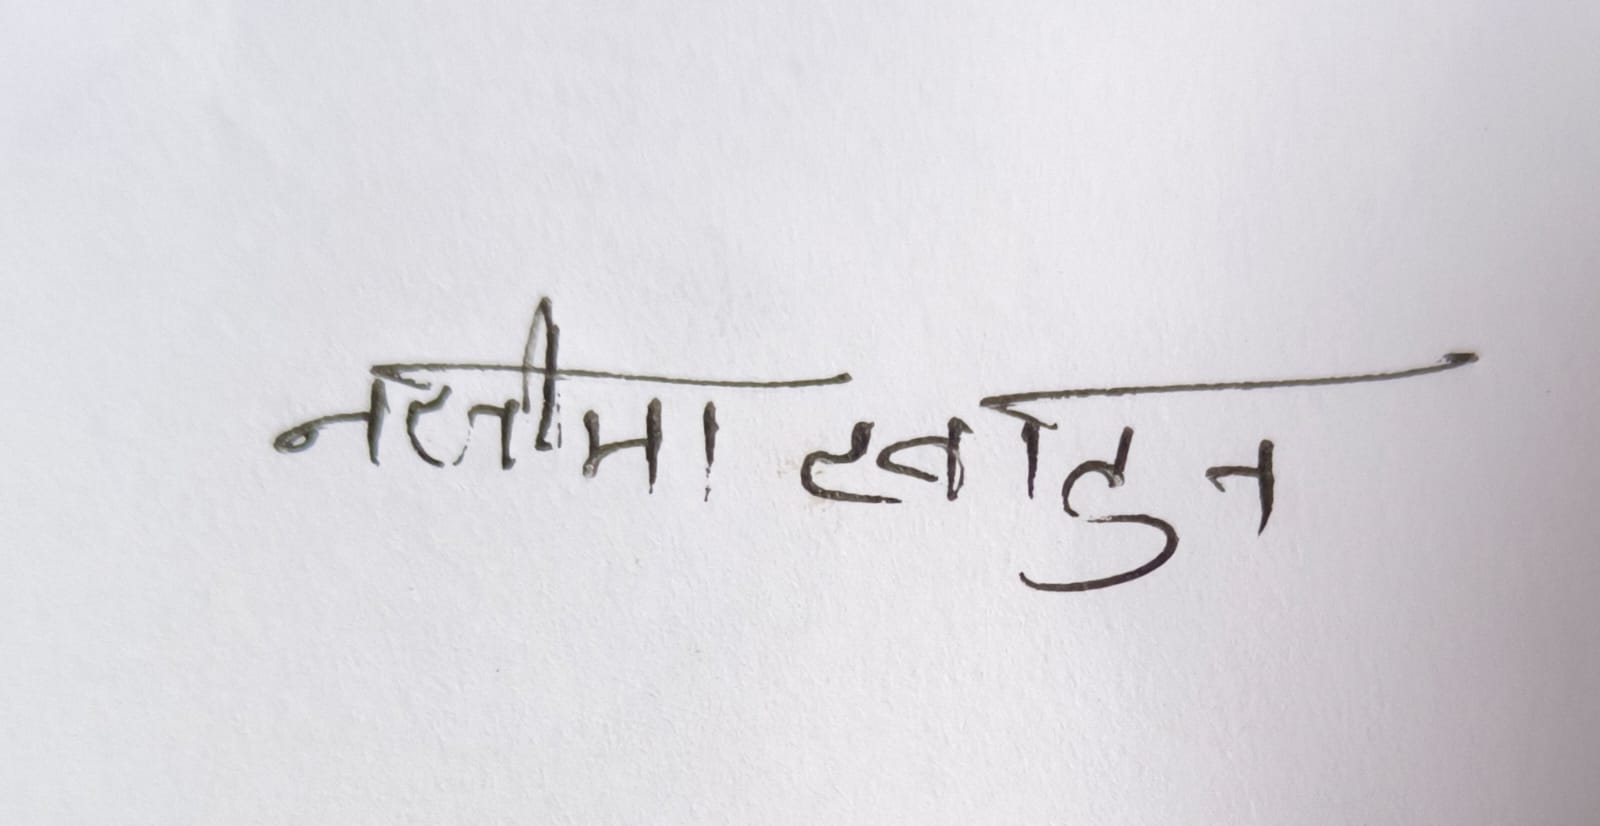 नसीमा खातुन